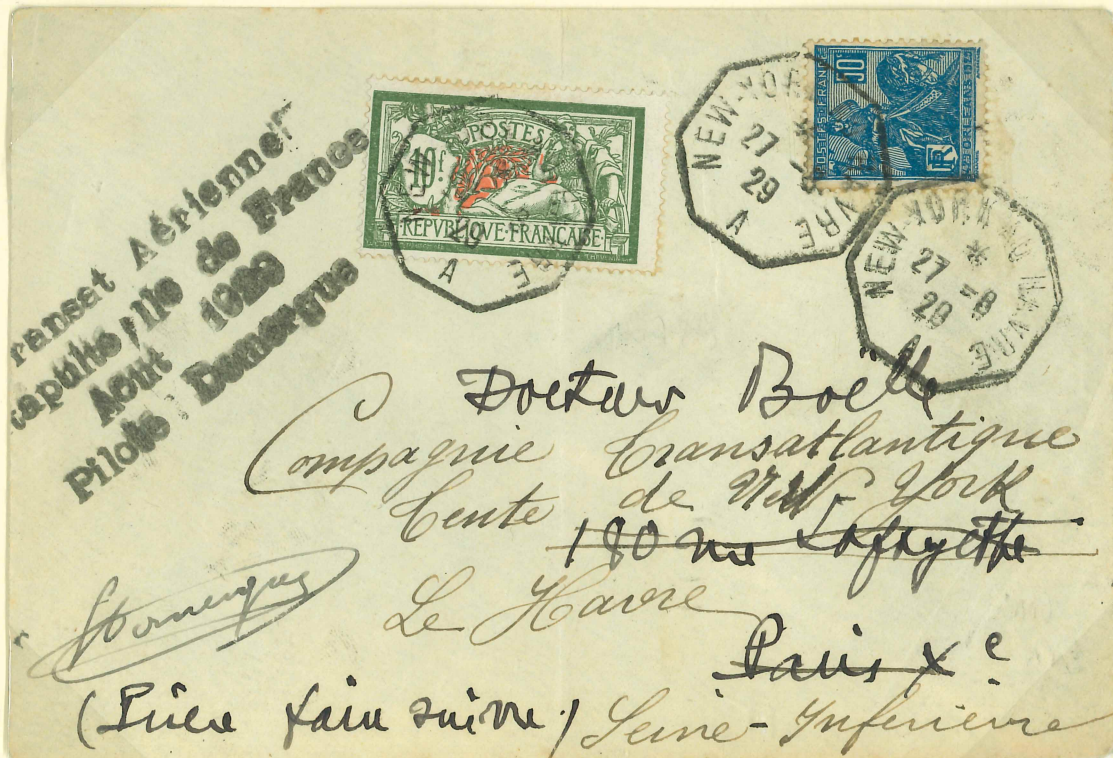 ransat Aérienne"
capulte, Ile de France
Août 1929
Pilote Demergue
POSTES
10f
REPVBLIQVE·FRANÇAISE
29
A
NEW-YORK
27
29
A
VRE
50c
POSTES-FRANCE
RF
NEW-YORK AU HAVRE
*
27 -8
29
A
Docteur Boëlle
Compagnie Transatlantique
Tente de New York
180 rue Lafayette
Le Havre
Paris Xe
(Prière faire suivre)
Seine-Inférieure